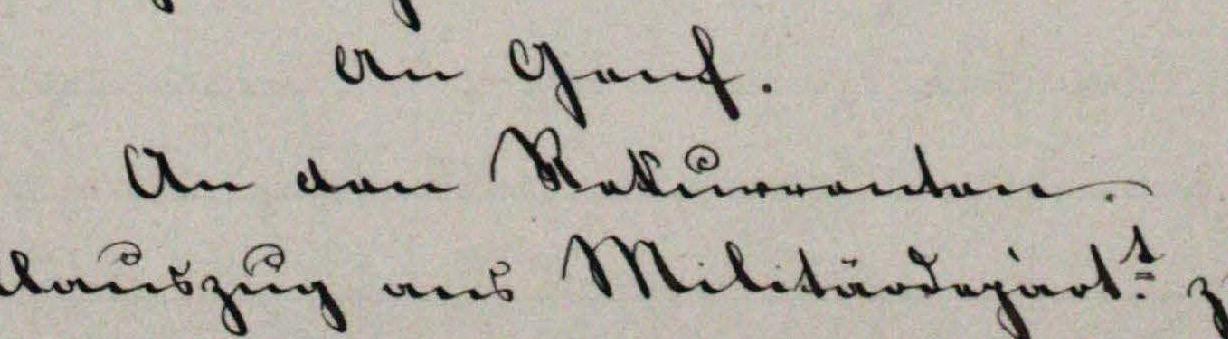 An Genf.
An den Rekurrenten.
lauszug ans Militärdepart.t z